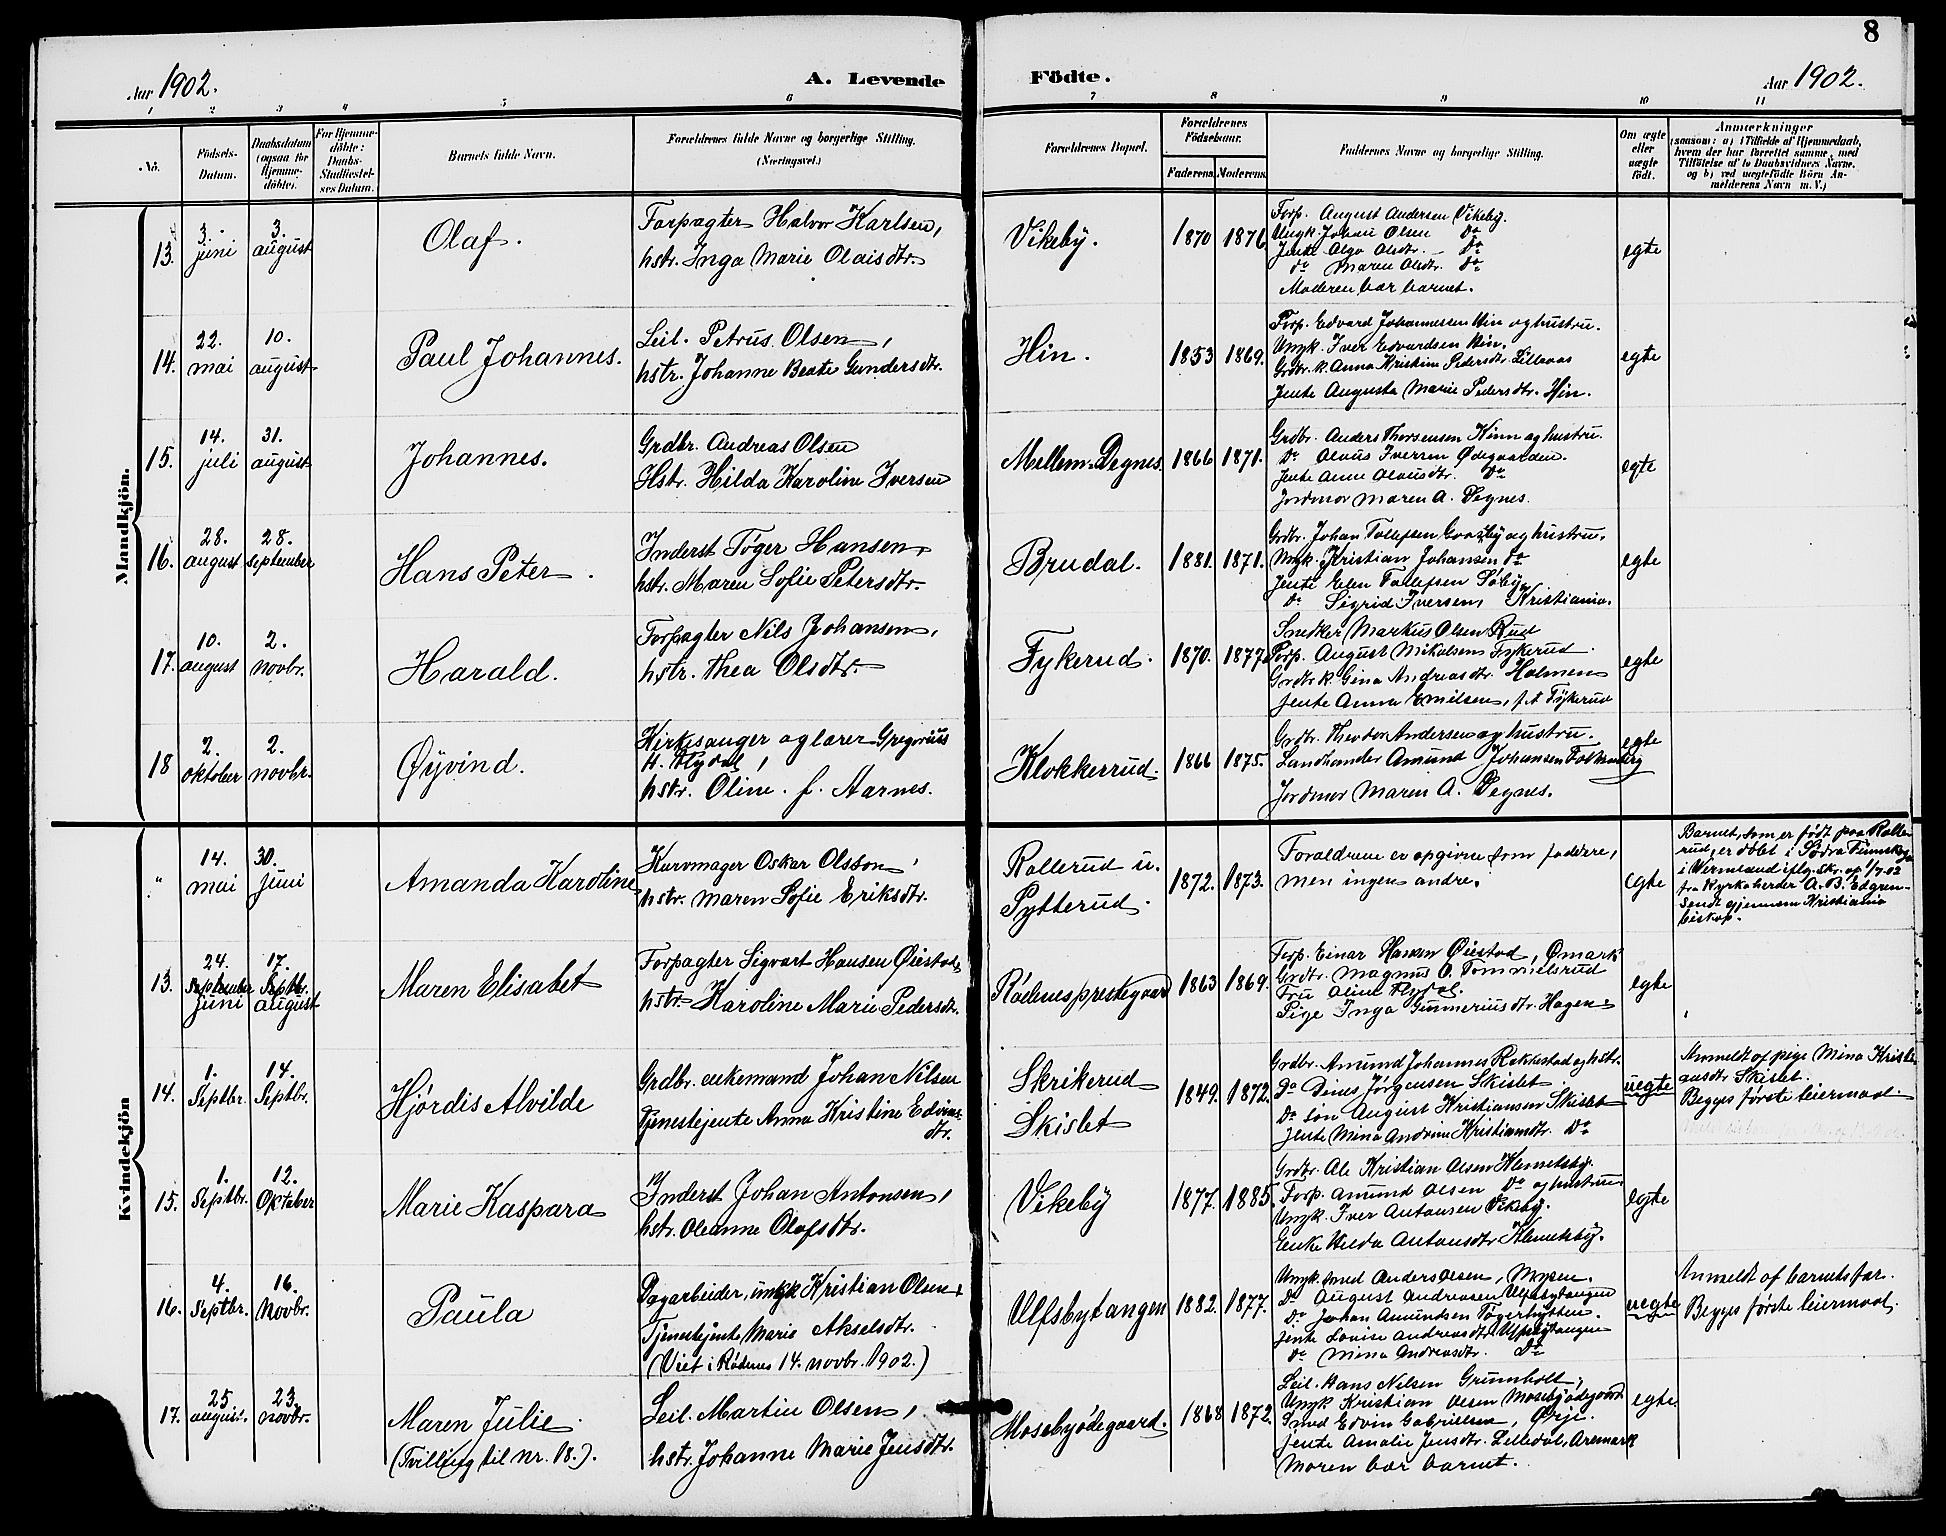 8
Aar 1902.
A. Levende Födte.
Aar 1902.
1 2 3 4 5 6 7 8 9 10 11
No.
Födsels-Datum.
Daabsdatum (ogsaa for Hjemmedöbte).
For Hjemmedöbte: Daabs-Stadfæstelses Datum.
Barnets fulde Navn.
Forældrenes fulde Navne og borgerlige Stilling.
(Næringsvei.)
Forældrenes Bopæl.
Forældrenes Födselsaar.
Faderens. Moderens.
Faddernes Navne og borgerlige Stilling.
Om ægte eller uægte födt.
Anmærkninger
(saasom: a) i Tilfælde af Hjemmedaab, hvem der har forrettet samme, med Tilföielse af to Daabsvidners Navne, og b) ved uægtefödte Börn Anmelderens Navn m. V.)
Mandkjön.
13. 3. juni
3. august
Olaf.
Forpagter Halvor Karlsen,
hstr. Inga Marie Olaisdtr.
Vikeby.
1870 1876
Forp. August Andersen Vikeby.
Ungk. Johan Olsen Do
Jente Olga Olsdtr. Do
do Maren Olsdtr. Do
Moderen bar barnet.
egte
14. 22. mai
10. august
Paul Johannes.
Leil. Petrus Olsen,
hstr. Johanne Beate Gundersdtr.
Hin.
1853 1869.
Forp. Edvard Johannessen Hin og hustru.
Ungk. Iver Edvardsen Hin.
Grdbr. k. Anna Kristine Pedersdtr. Lilleaas
Jente Augusta Marie Pedersdtr. Hin.
egte
15. 14. juli
31. august
Johannes.
Grdbr. Andreas Olsen
Hstr. Hilda Karoline Iversen
Mellem-Degnes
1866 1871.
Grdbr. Anders Thorsensen Hinn og hustru.
Do Olaus Iversen Ødegaarden.
Jente Anne Olausdtr. Do
Jordmor Maren A. Degnes.
egte
16. 28. august
28. september
Hans Peter.
Inderst Töger Hansen,
hstr. Maren Sofie Petersdtr.
Brudal.
1881. 1871.
Grdbr. Johan Tollefsen Gaasby og hustru.
Ungk. Kristian Johansen Do
Jente Elen Tollefsen Söby
Do Sigrid Iversen, Kristiania.
egte
17. 10. august
2. novbr.
Harald.
Forpagter Nils Johansen,
hstr. Thea Olsdtr.
Fykerud.
1870. 1877.
Snedker Markus Olsen Rud
Forp. August Mikalsen Fykerud.
Grdbr. k. Gina Andreasdtr. Holmen
Jente Anna Emilsen, f.t. Fykerud
egte
18 2. oktober
2. novbr.
Øyvind.
Kirkesanger og lærer Gregorius
H. Flydal,
hstr. Oline. f. Aarnes.
Klokkerrud.
1866 1875.
Grdbr. Theodor Andersen og hustru.
Landhandler Amund Johansen Falkenberg
Jordmor Maren A. Degnes.
egte
Kvindekjön
" 14. mai
30. juni
Amanda Karoline
Kurvmager Oskar Olsson,
hstr. Maren Sofie Eriksdtr.
Rollerud u.
Pytterud.
1872. 1873.
Forældrene er opgivne som faddere,
men ingen andre.
egte
Barnet, som er født paa Rolle-
rud, er döbt i Södra Finnskoga
i Wermland iflg. skr. af 1/7-02
fra Kyrkoherder A. B. Edgren-
sendt gjennem Kristiania
biskop.
13. 24. September juni
17. Septbr. august
Maren Elisabet
Forpagter Sigvart Hansen Øiestad,
hstr. Karoline Marie Pedersdtr.
Rödenesprestegaard
1863 1869.
Forp. Einar Hansen Øiestad, Ømark
Grdbr. Magnus O. Tommelsrud
Fru Oline Flydal.
Pige Inga Gunneriusdtr. Hagen.
egte
14. 1. Septbr.
14. Septbr.
Hjördis Alvilde
Grdbr. enkemand Johan Nilsen
Tjenestejente Anna Kristine Edvins
dtr.
Skrikerud
Skislet
1849. 1872.
Grdbr. Amund Johannes Rakkestad og hstr.
Do Dines Jörgensen Skislet
Do sön August Kristiansen Skislet
Jente Mina Andrine Kristiansdtr. Do
uegte
Anmeldt af pige Mina Kristi-
ansdtr Skislet.
Begges første leiermaal.
15. 1. Septbr.
12. Oktober
Marie Kaspara
Inderst Johan Antonsen,
hstr. Oleanne Olafsdtr.
Vikeby
1877. 1885.
Grdbr. Ole Kristian Olsen Klemetsby.
Forp. Amund Olsen Do og hustru
Ungk. Iver Antonsen Vikeby.
Enke Helda Antonsdtr. Klemetsby.
egte
16. 4. Septbr.
16. Novbr.
Paula
Dagarbeider, ungk Kristian Olsen,
Tjenestejente Marie Akselsdtr.
(Viet i Rödenes 14. novbr. 1902.)
Ulfsbytangen
1882. 1877.
Ungk. smed Anders Olsen, Mysen.
Do August Andreasen Ulfsbytangen
Do Johan Amundsen Tögerhytten.
Jente Lovise Andreasdtr. Ulfsbytangen
Do Mina Andreasdtr. Do
uegte
Anmeldt af barnets far.
Begges første leiermaal.
17. 25 august.
23. novbr.
Maren Julie
(Tvilling til nr. 18.).
Leil. Martin Olsen,
hstr. Johanne Marie Jensdtr.
Mosebyödegaard.
1868 1872.
Leil. Hans Nelsen Grunnholt,
Ungk Kristian Olsen Mosebyödegaard
Smed Edvin Gabrielsen, Ørje.
Jente Amalie Jensdtr. Lilledal, Aremark
Moren bar barnet.
egte